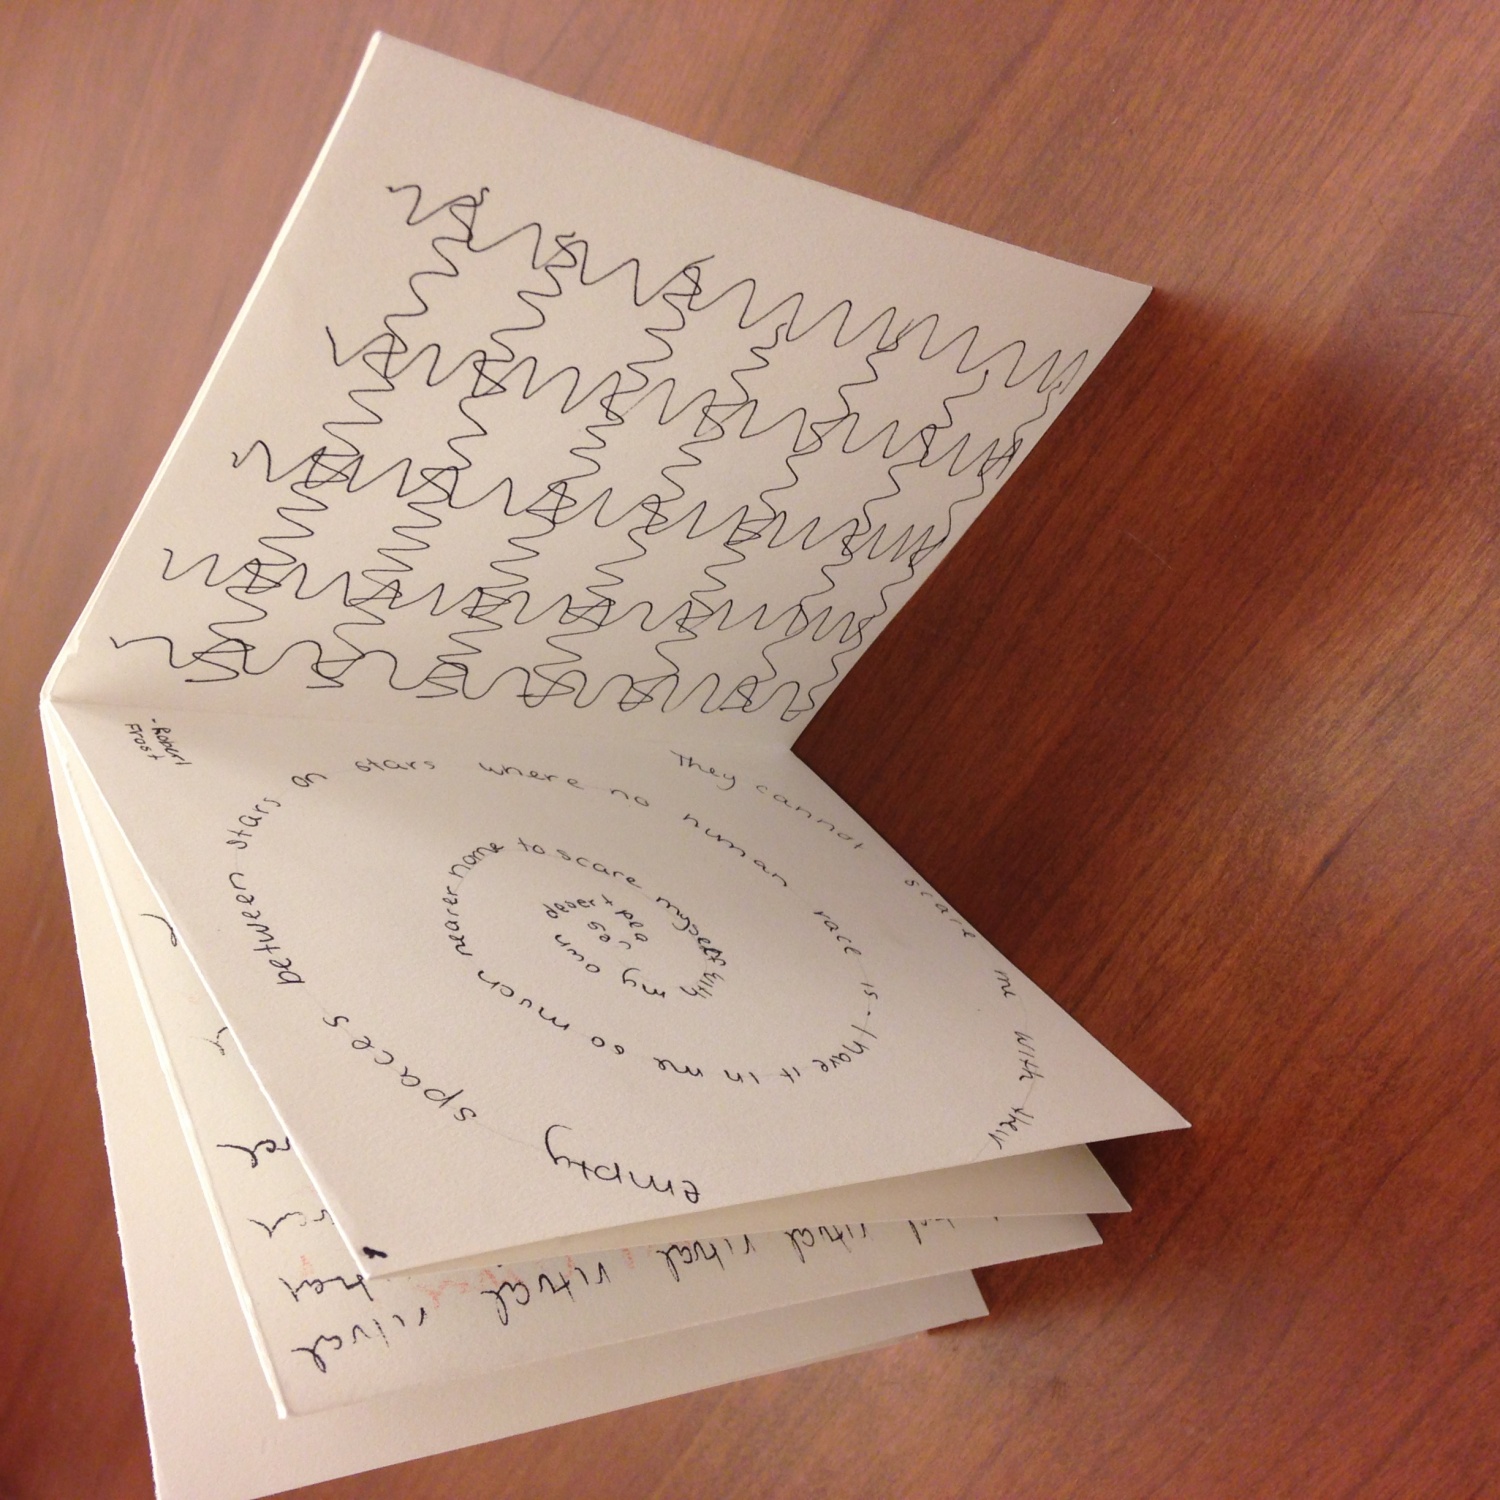 They cannot scare me with their empty spaces between stars on stars where no human race is - I have it in me so much nearer home to scare myself with my own desert places
-Robert
Frost
ritual ritual ritual ritual ritual